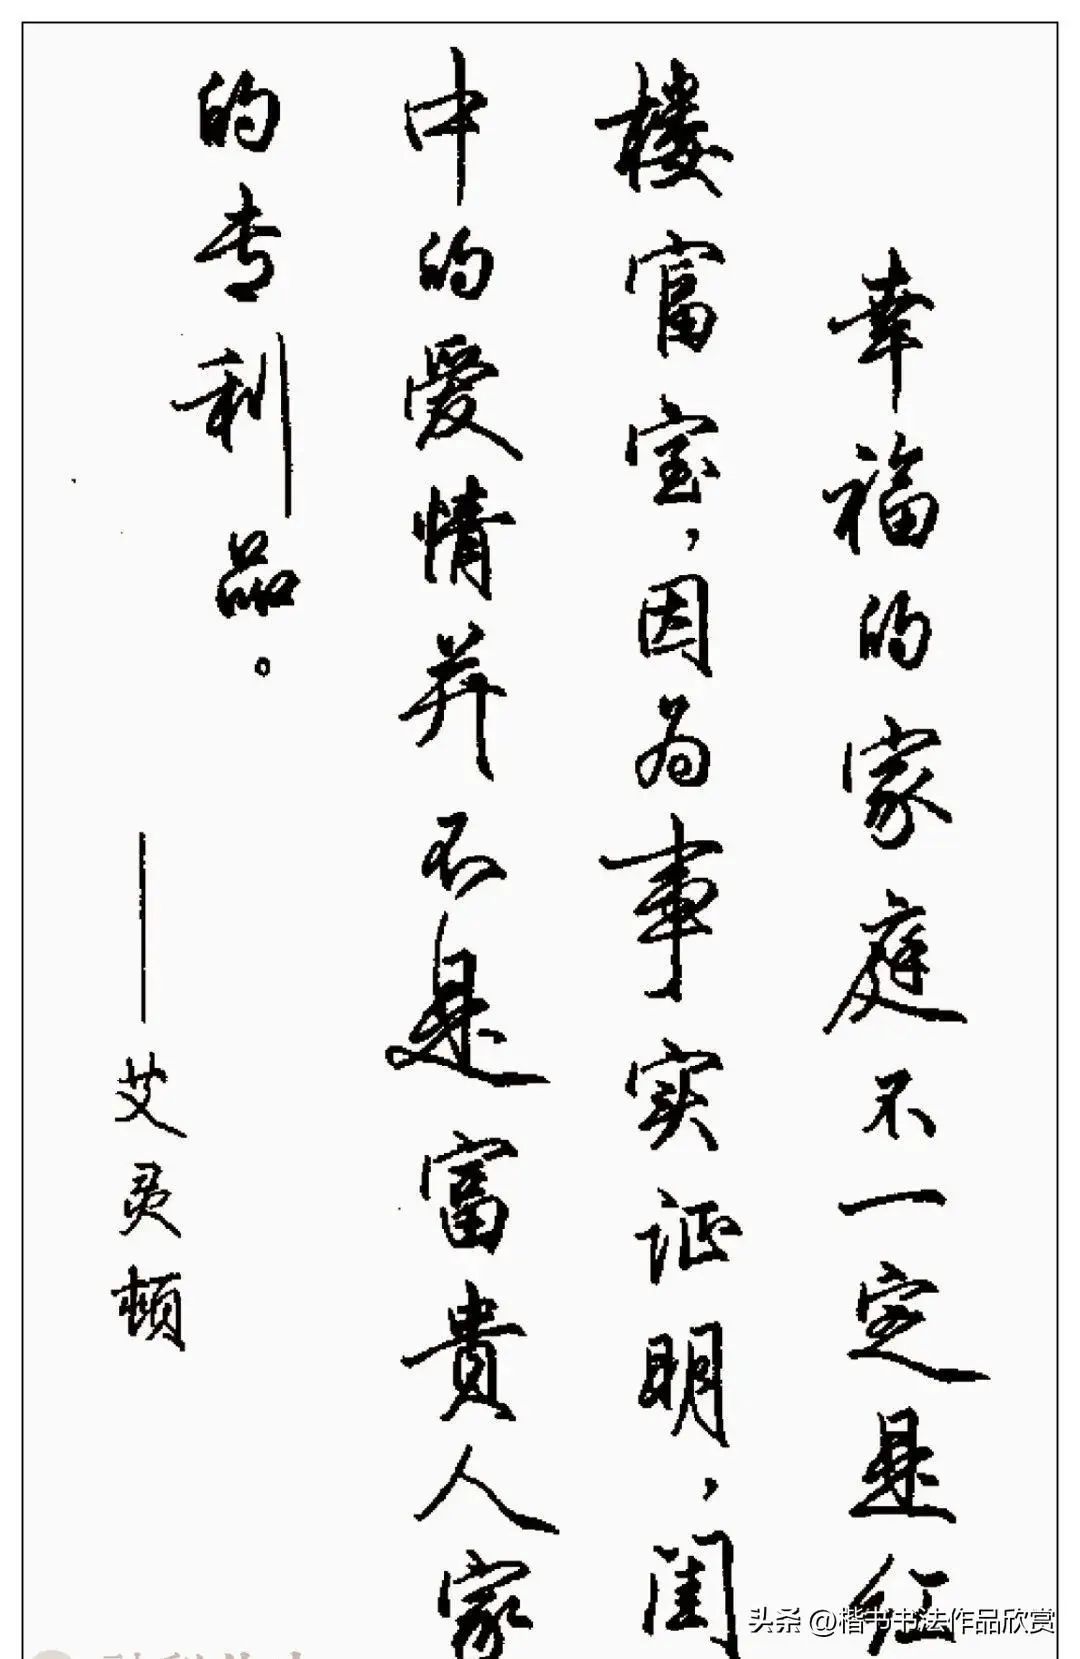 幸福的家庭不一定是红
楼富室，因为事实证明，闺
中的爱情并不是富贵人家
的专利品。
——艾灵顿
头条 @楷书书法作品欣赏